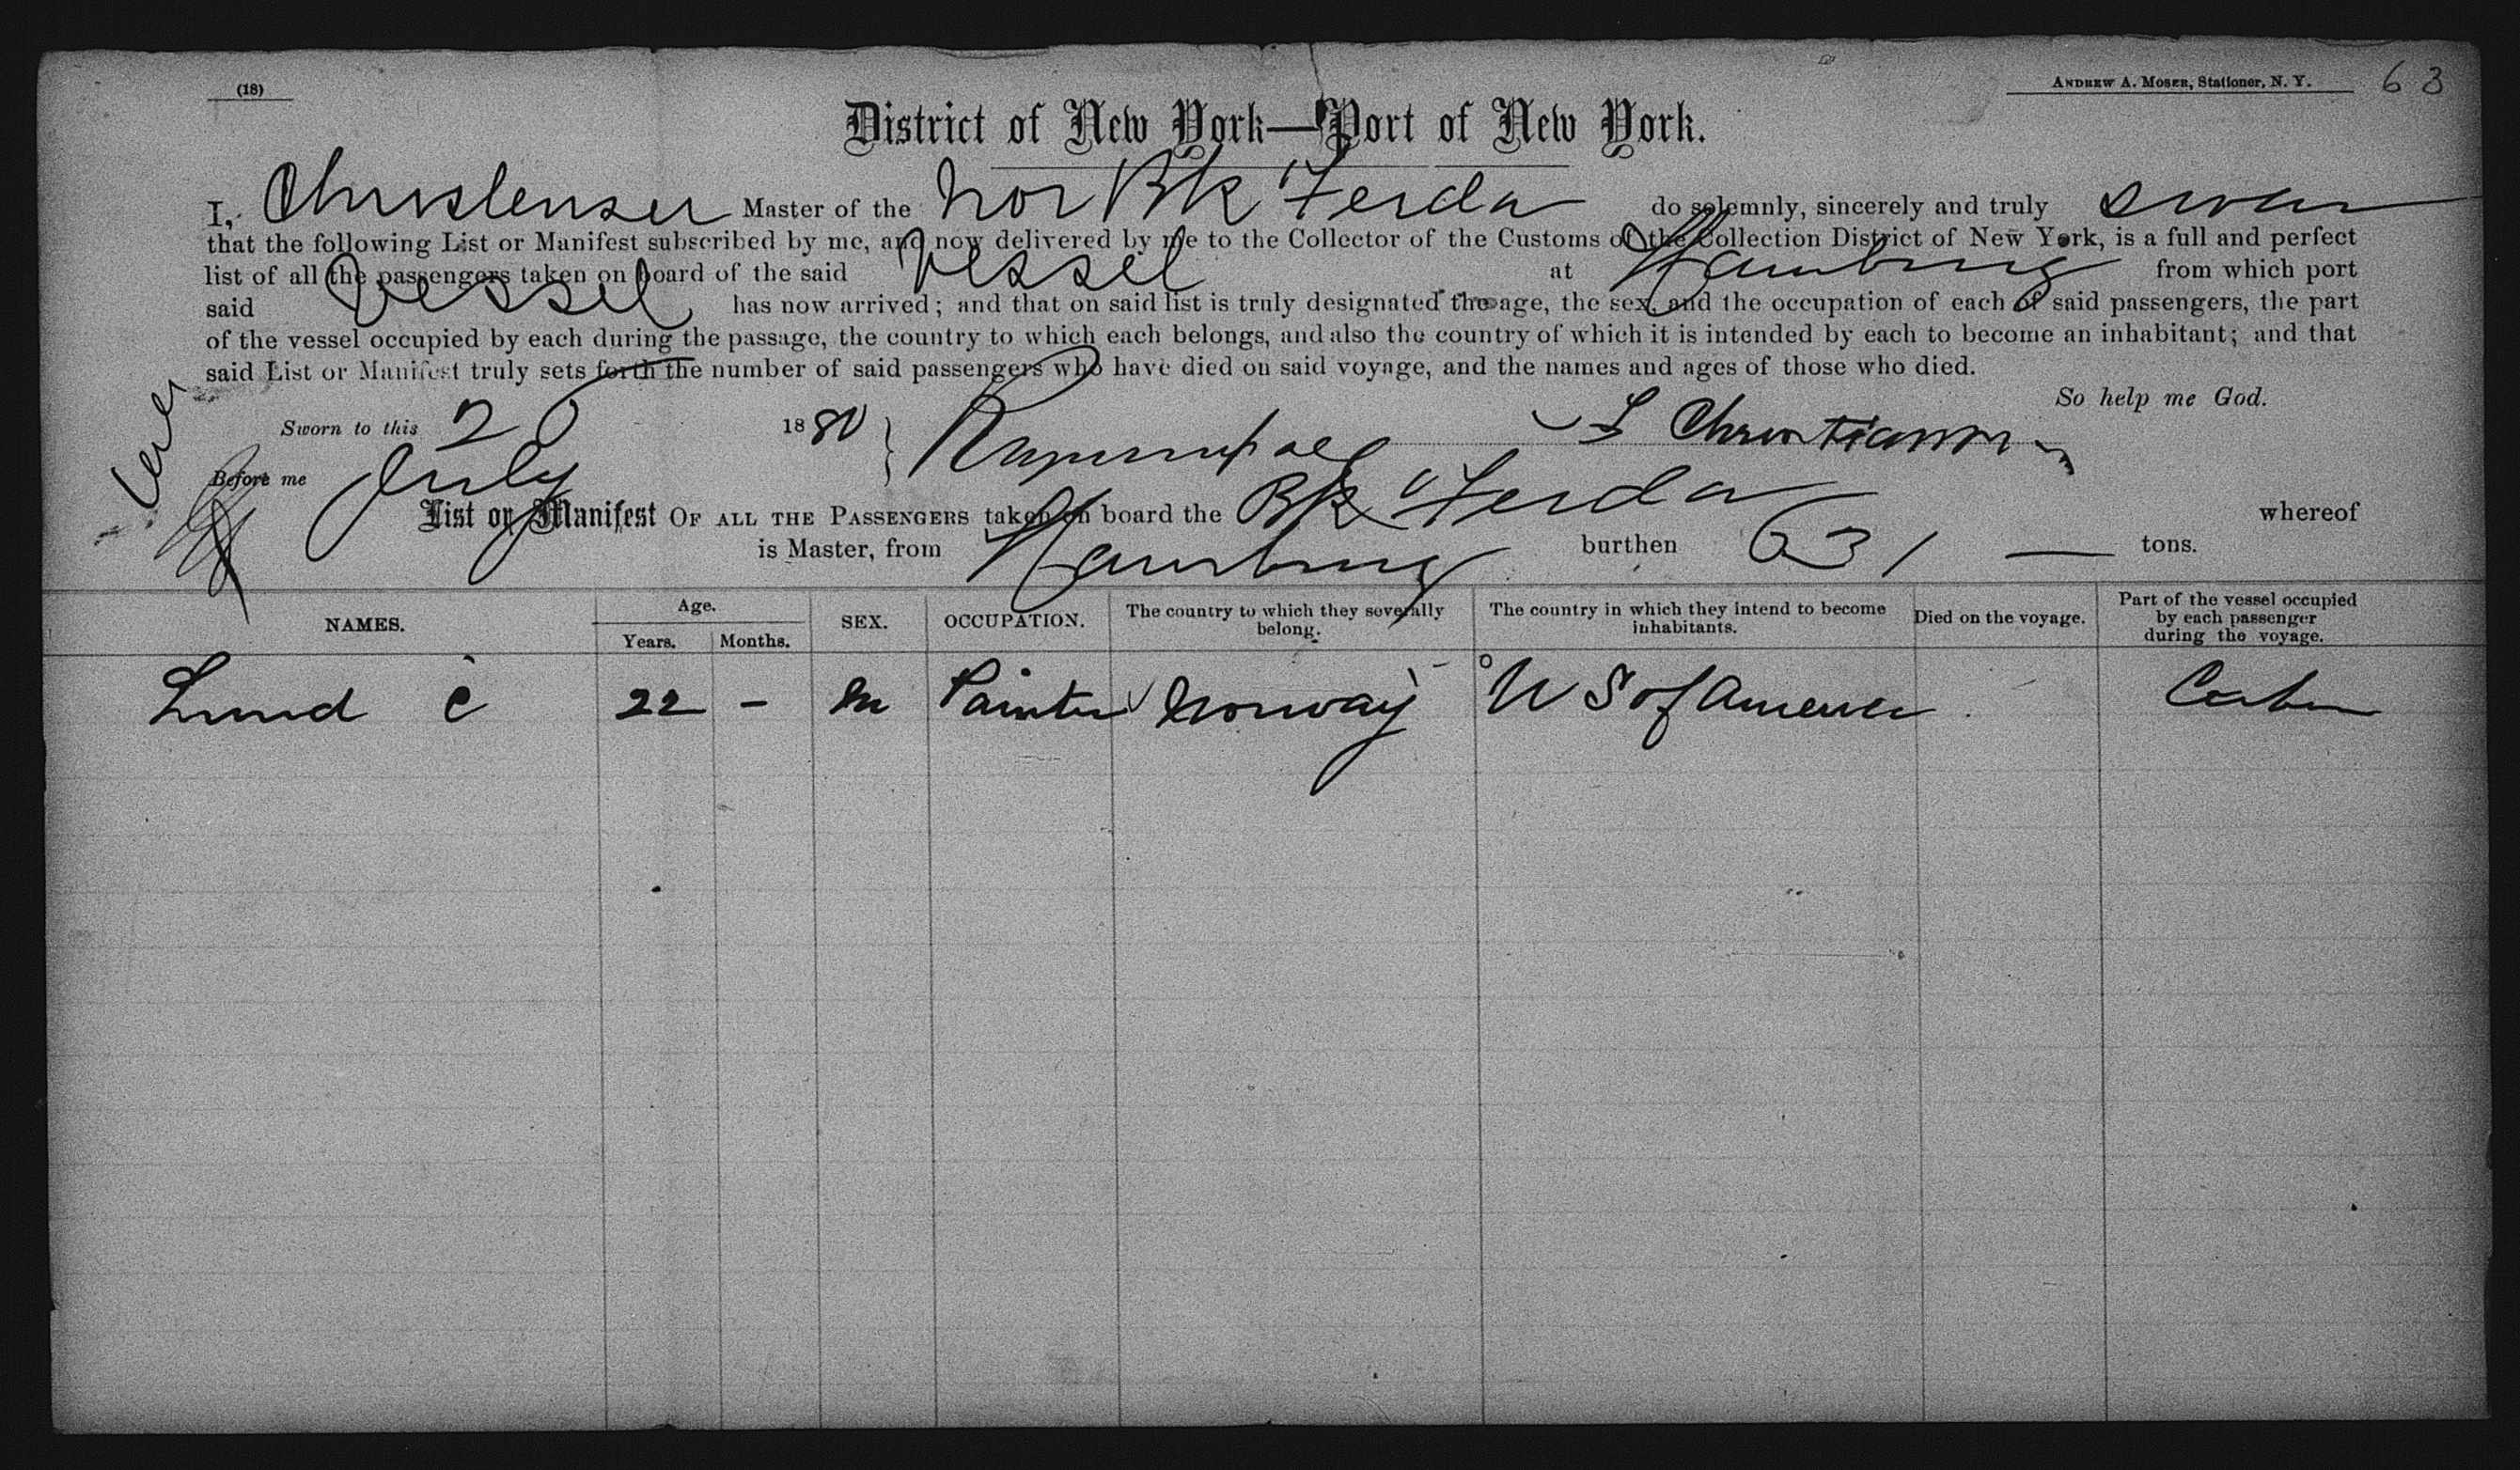 (18)
Andrew A. Moser, Stationer, N. Y.
63
District of New York—Port of New York.
I, Christensen Master of the Nor Bk "Ferda do solemnly, sincerely and truly swear
that the following List or Manifest subscribed by me, and now delivered by me to the Collector of the Customs of the Collection District of New York, is a full and perfect
list of all the passengers taken on board of the said Vessel at Hamburg from which port
said Vessel has now arrived; and that on said list is truly designated the age, the sex, and the occupation of each of said passengers, the part
of the vessel occupied by each during the passage, the country to which each belongs, and also the country of which it is intended by each to become an inhabitant; and that
said List or Manifest truly sets forth the number of said passengers who have died on said voyage, and the names and ages of those who died.
So help me God.
Sworn to this 20 1880
Before me July
List or Manifest OF ALL THE PASSENGERS taken on board the Bk "Ferda whereof
is Master, from Hamburg burthen 631 — tons.
NAMES. Age. Years. Months. SEX. OCCUPATION. The country to which they severally belong. The country in which they intend to become inhabitants. Died on the voyage. Part of the vessel occupied by each passenger during the voyage.
Lund C 22 - M Painter Norway U S of America Cabin